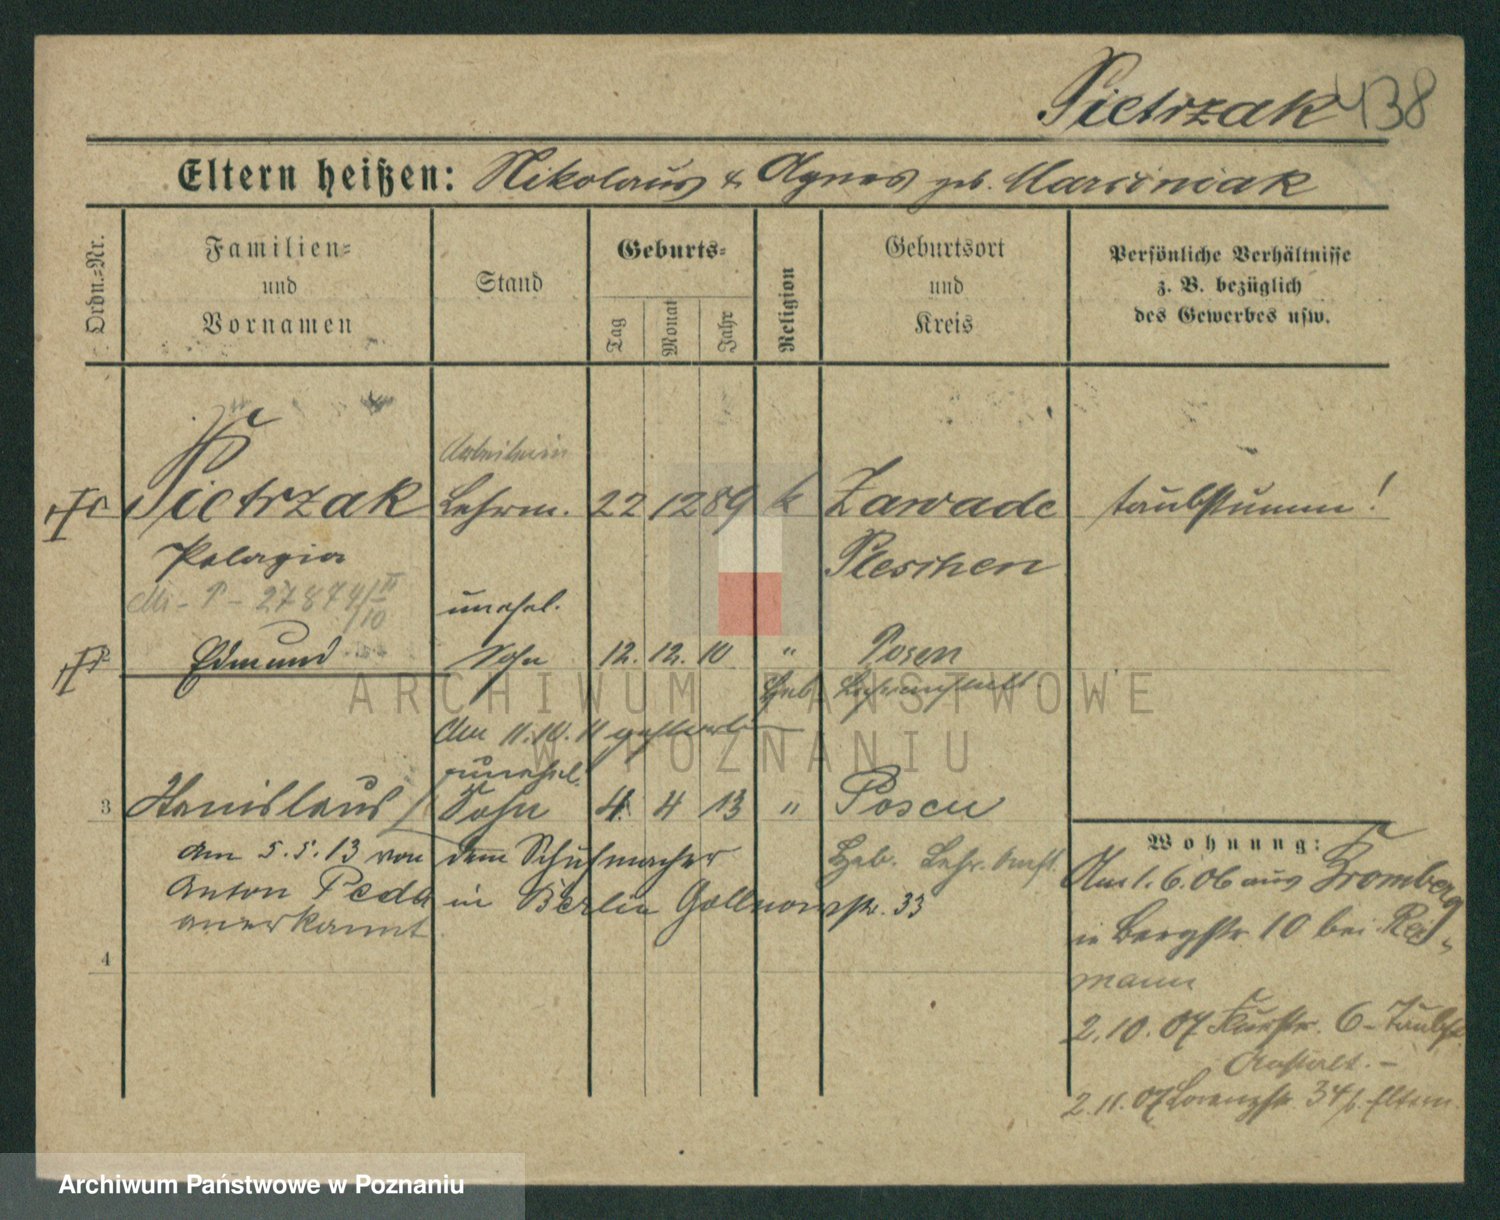 Pietrzak 438
Eltern heißen: Nikolaus & Agnes geb. Marciniak
Ordn.-Nr.
Familien-
und
Vornamen
Stand
Geburts-
Tag
Monat
Jahr
Religion
Geburtsort
und
Kreis
Persönliche Verhältnisse
z. B. bezüglich
des Gewerbes usw.
Arbeiterin
Pietrzak Lehrm. 22 12 89 k Zawade taubstumm!
Pelagia Pleschen
P - 27874/II
10
unehel.
Edmund Sohn 12. 12. 10 " Posen
Heb. Lehranstalt
Am 11.10.11
unehel.
3 Stanislaus Sohn 4 4 13 " Posen
am 5.5.13 von dem Schuhmacher Heb. Lehr. Anst.
Anton Peda in Berlin Gollnowstr. 33
anerkannt
4
Wohnung:
Am 1.6.06 aus Bromberg
in Bergstr. 10 bei
mann
2.10.07 6 - Taubst.
Anstalt. -
2.11.07 Lorenzstr. 34 b. Eltern
ARCHIWUM PAŃSTWOWE
W POZNANIU
Archiwum Państwowe w Poznaniu